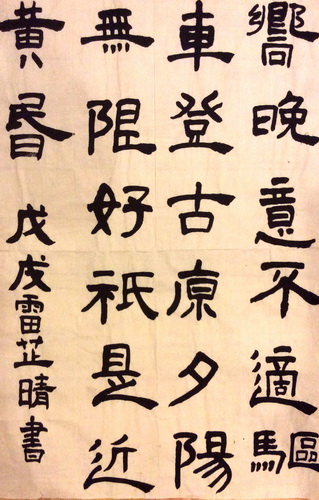 嚮晚意不適驅
車登古原夕陽
無限好祇是近
黃昬
戊戌雷芷晴書